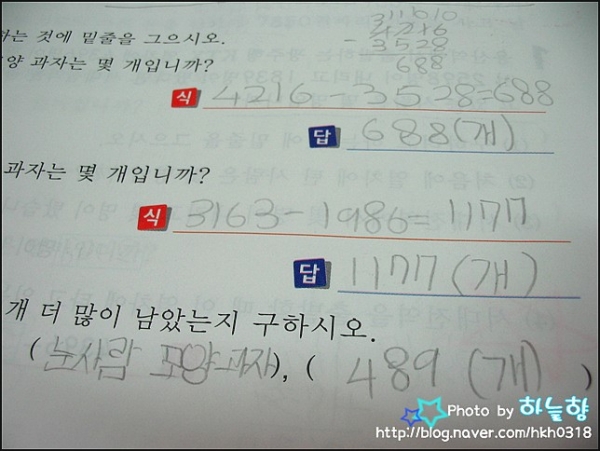 하는 것에 밑줄을 그으시오.
3 11 10 10
4216
- 3528
688
양 과자는 몇 개입니까?
식 4216-3528=688
답 688(개)
과자는 몇 개입니까?
식 3163-1986=1177
답 1177(개)
개 더 많이 남았는지 구하시오.
(눈사람 모양과자), ( 489 (개) )
Photo by 하늘향
http://blog.naver.com/hkh0318